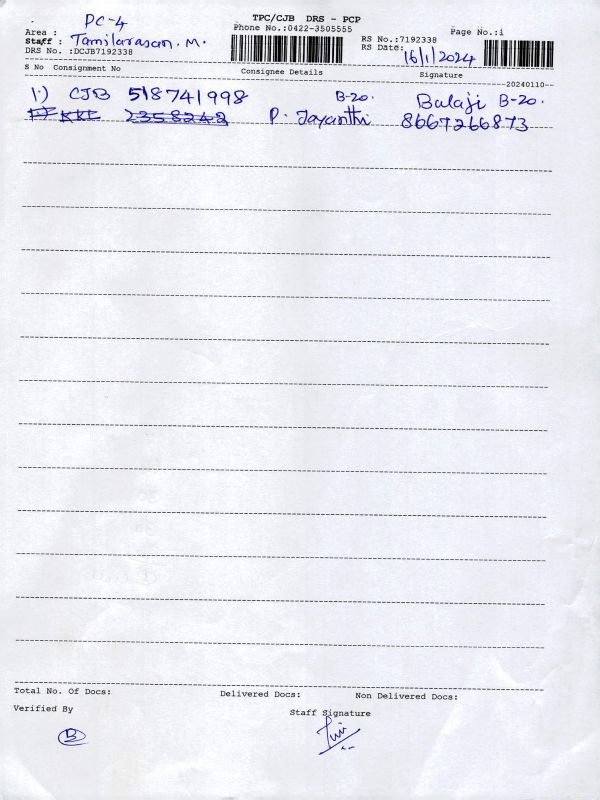 TPC/CJB DRS - PCP
PC-4
Phone No.:0422-3505555
Page No.:1
Area :
Staff : Tamilarasan. M.
RS No.:7192338
DRS No. :DCJB7192338
RS Date: 16/1/2024
S No Consignment No Consignee Details Signature
20240110
1.) CJB 518741998 B-20. Balaji B-20.
KKF 2358242 P. Jayanthi 8667266873
Total No. Of Docs: Delivered Docs: Non Delivered Docs:
Verified By Staff Signature
B